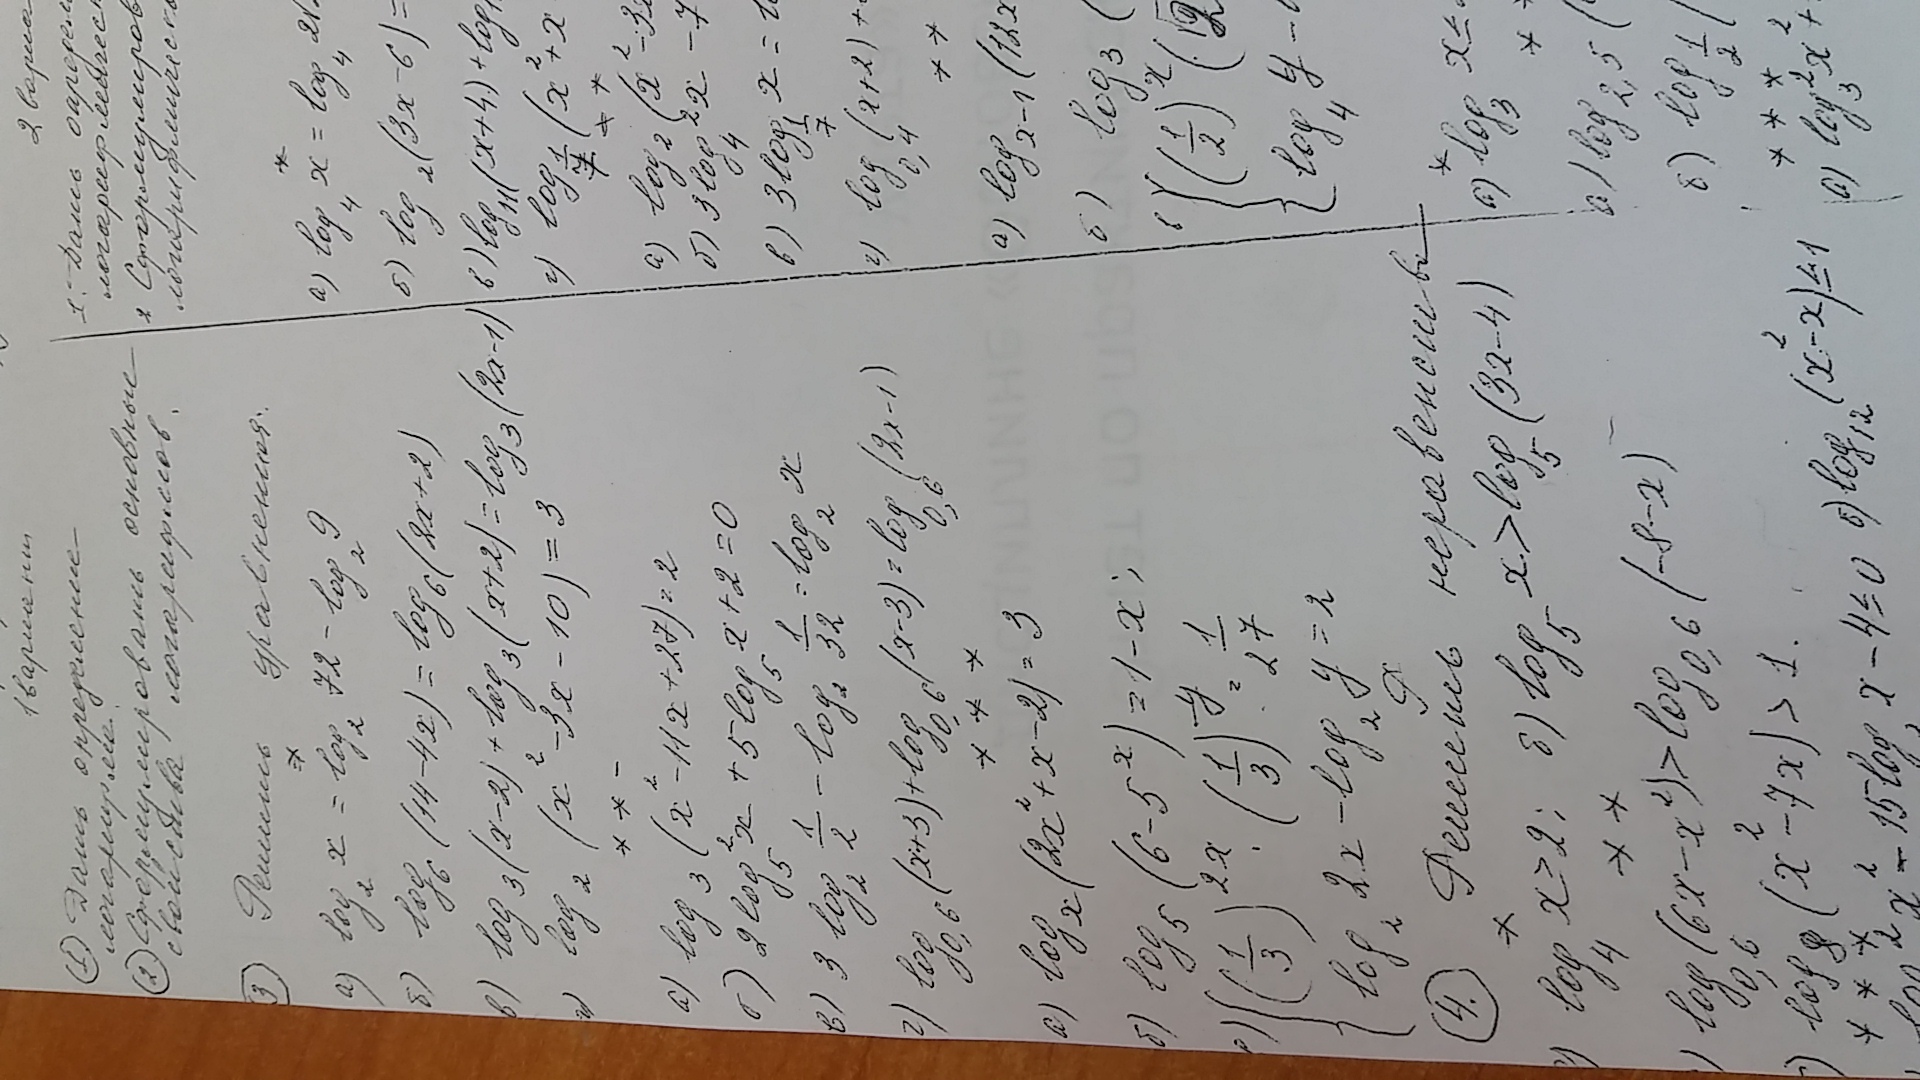 1 вариант
① Дать определение
логарифма.
② Сформулировать основные
свойства логарифмов.
③ Решить уравнения:
*
а) log₂ x = log₂ 72 - log₂ 9
б) log₆ (14-4x) = log₆ (2x+2)
в) log₃ (x-2) + log₃ (x+2) = log₃ (2x-1)
г) log₂ (x² - 3x - 10) = 3
* *
а) log₃ (x² - 11x + 27) = 2
б) 2 log₅² x + 5 log₅ x + 2 = 0
в) 3 log₂ 1/2 - log₂ 1/32 = log₂ x
г) log₀,₆ (x+3) + log₀,₆ (x-3) = log₀,₆ (2x-1)
* * *
а) logₓ (2x² + x - 2) = 3
б) log₅ (6 - 5ˣ) = 1 - x;
в) { (1/3)^2x · (1/3)^-y = 1/27
log₂ 2x - log₂ y = 2
④. Решить неравенства
*
log₄ x ≥ 2; б) log₅ x > log₅ (3x-4)
* *
log₀,₆ (6x - x²) > log₀,₆ (-8-x)
log₈ (x² - 7x) > 1.
* * *
x - 15 log x - 4 ≤ 0 б) log₁₂ (x² - x) ≤ 1
2 вариа
1. Дать определ
логарифмическ
2 Сформулиров
логарифмическ
*
а) log₄ x = log₄ 2
б) log₂ (3x-6) =
в) log₁₁ (x+4) + log
г) log 1/7 (x² + x
* *
а) log₂ (x² - 3x
б) 3 log₄² x - 7
в) 3 log 1/7 x = l
г) log₀,₄ (x+2) +
* *
а) logₓ₋₁ (12x
б) log₃ (
в { (1/2)ˣ (√2
log₄ y -
*
а) log₃ x ≤
* *
а) log₂,₅ (
б) log 1/2 (
* * *
а) log₃² x +